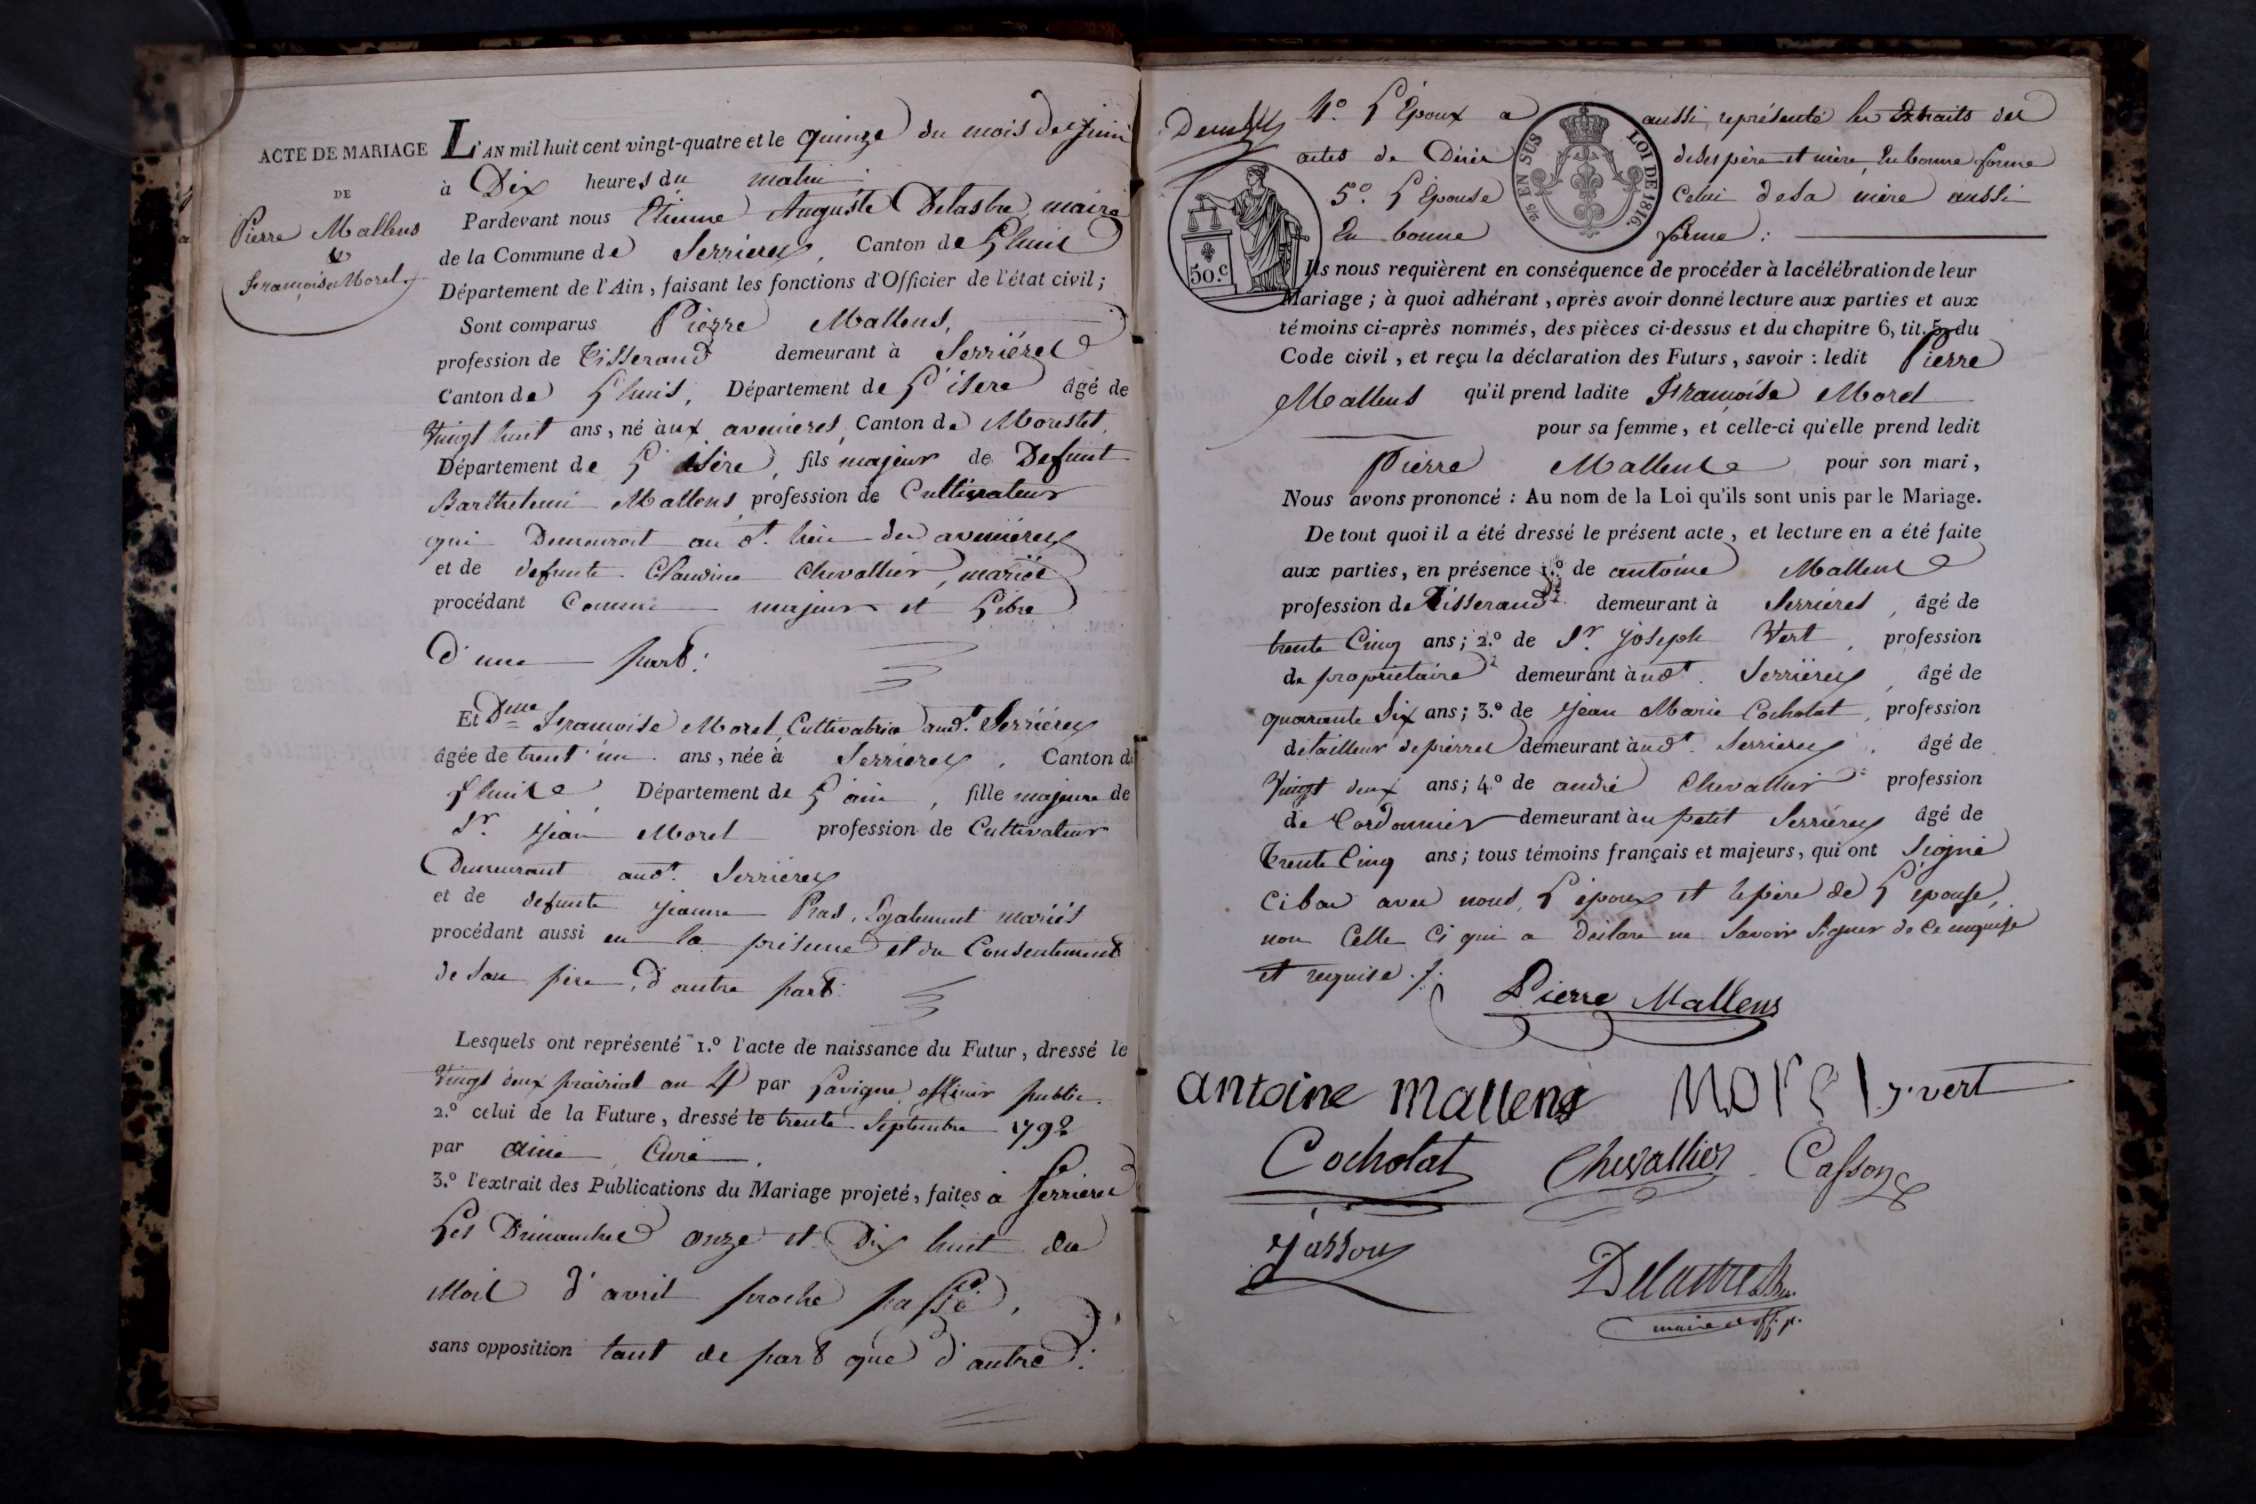 ACTE DE MARIAGE
DE
Pierre Mallens
&
Françoise Morel
L'AN mil huit cent vingt-quatre et le quinze du mois de Juin
à Dix heures du matin
Pardevant nous Etienne Auguste Delastre, maire
de la Commune de Serrieres, Canton de Lhuis
Département de l'Ain, faisant les fonctions d'Officier de l'état civil;
Sont comparus Pierre Mallens,
profession de Tisserand demeurant à Serriéres
Canton de Lhuis, Département de L'isere âgé de
Vingt huit ans, né aux avenieres, Canton de Morestel,
Département de L'isère, fils majeur de Defunt
Barthelemi Mallens, profession de Cultivateur
qui Demeuroit au dt. lieu des avenières
et de defunte Claudine Chevallier, mariés
procédant Comme majeur et Libre
d'une part:
Et Dme Françoise Morel, Cultivatrice audt. Serriéres
âgée de trent'un ans, née à Serrieres, Canton de
Lhuis, Département de L'ain, fille majeure de
Sr. Jean Morel profession de Cultivateur
Demeurant audt. Serrieres
et de defunte Jeanne Pras, Legalement mariés
procédant aussi en la présence et du Consentement
de son père, d'autre part:
Lesquels ont représenté 1.º l'acte de naissance du Futur, dressé le
Vingt deux prairial an 4 par Lavigne, officier public.
2.º celui de la Future, dressé le trente Septembre 1792
par Curé.
3.º l'extrait des Publications du Mariage projeté, faites à Serrieres
Les Dimanches onze et Dix huit du
Mois d'avril proche passé,
sans opposition tant de part que d'autre:
4º. L'Epoux a aussi représenté les Extraits des
actes de Décès de ses père et mère, En bonne forme
5º. L'Epouse Celui de sa mère aussi
En bonne forme:
2/5 EN SUS
LOI DE 1816.
50.c
Ils nous requièrent en conséquence de procéder à la célébration de leur
Mariage; à quoi adhérant, après avoir donné lecture aux parties et aux
témoins ci-après nommés, des pièces ci-dessus et du chapitre 6, tit. 5, du
Code civil, et reçu la déclaration des Futurs, savoir: ledit Pierre
Mallens qu'il prend ladite Françoise Morel
pour sa femme, et celle-ci qu'elle prend ledit
Pierre Mallens pour son mari,
Nous avons prononcé: Au nom de la Loi qu'ils sont unis par le Mariage.
De tout quoi il a été dressé le présent acte, et lecture en a été faite
aux parties, en présence 1.º de antoine Mallens
profession de Tisserand demeurant à Serriéres, âgé de
trente Cinq ans; 2.º de Sr. Joseph Vert, profession
de propriétaire demeurant audt. Serrières, âgé de
quarante Six ans; 3.º de Jean Marie Cocholat, profession
de tailleur de pierres demeurant audt. Serrieres, âgé de
Vingt deux ans; 4.º de andré Chevallier profession
de Cordonnier demeurant au petit Serriéres âgé de
Trente Cinq ans; tous témoins français et majeurs, qui ont Signé
Cibas avec nous, L'époux et le père de L'épouse,
non Celle Ci qui a Déclaré ne Savoir Signer de ce enquise
et requise.
Pierre Mallens
antoine mallens
Morel
J. vert
Cocholat
Chevallier
Casson
Jasson
Delastre
maire et off. p.